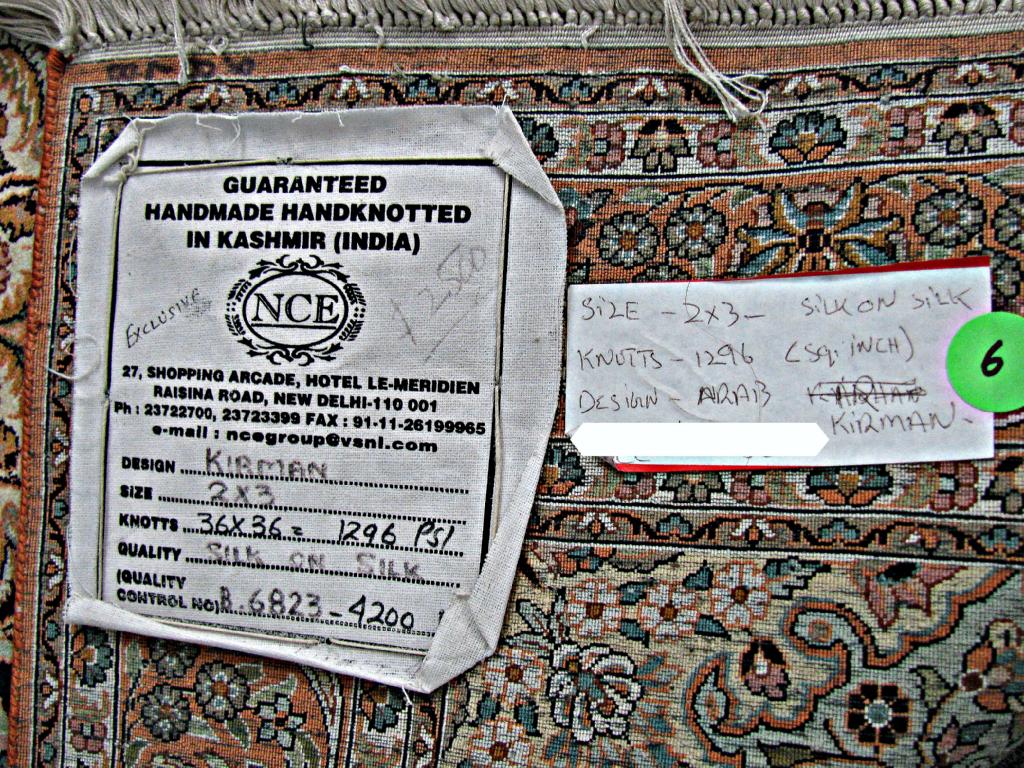 GUARANTEED
HANDMADE HANDKNOTTED
IN KASHMIR (INDIA)
EXCLUSIVE
NCE
27, SHOPPING ARCADE, HOTEL LE-MERIDIEN
RAISINA ROAD, NEW DELHI-110 001
Ph : 23722700, 23723399 FAX : 91-11-26199965
e-mail : ncegroup@vsnl.com
DESIGN ... KIRMAN
SIZE ... 2X3
KNOTTS ... 36X36 = 1296 PSI
QUALITY ... SILK ON SILK
(QUALITY
CONTROL NO) B. 6823 - 4200
SIZE - 2x3 - SILK ON SILK
KNUTTS - 1296 (Sq. INCH)
DESIGN - ARAB
KIRMAN -
6